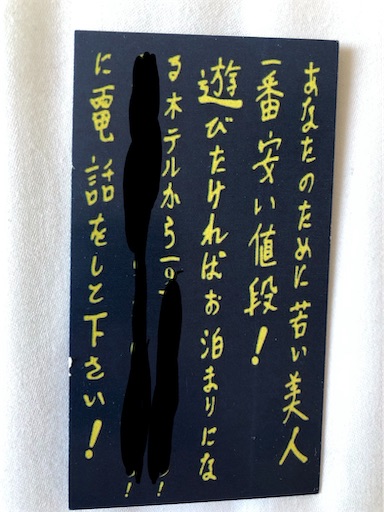 あなたのために若い美人
一番安い値段!
遊びたければお泊まりにな
るホテルから一
に電話をして下さい!